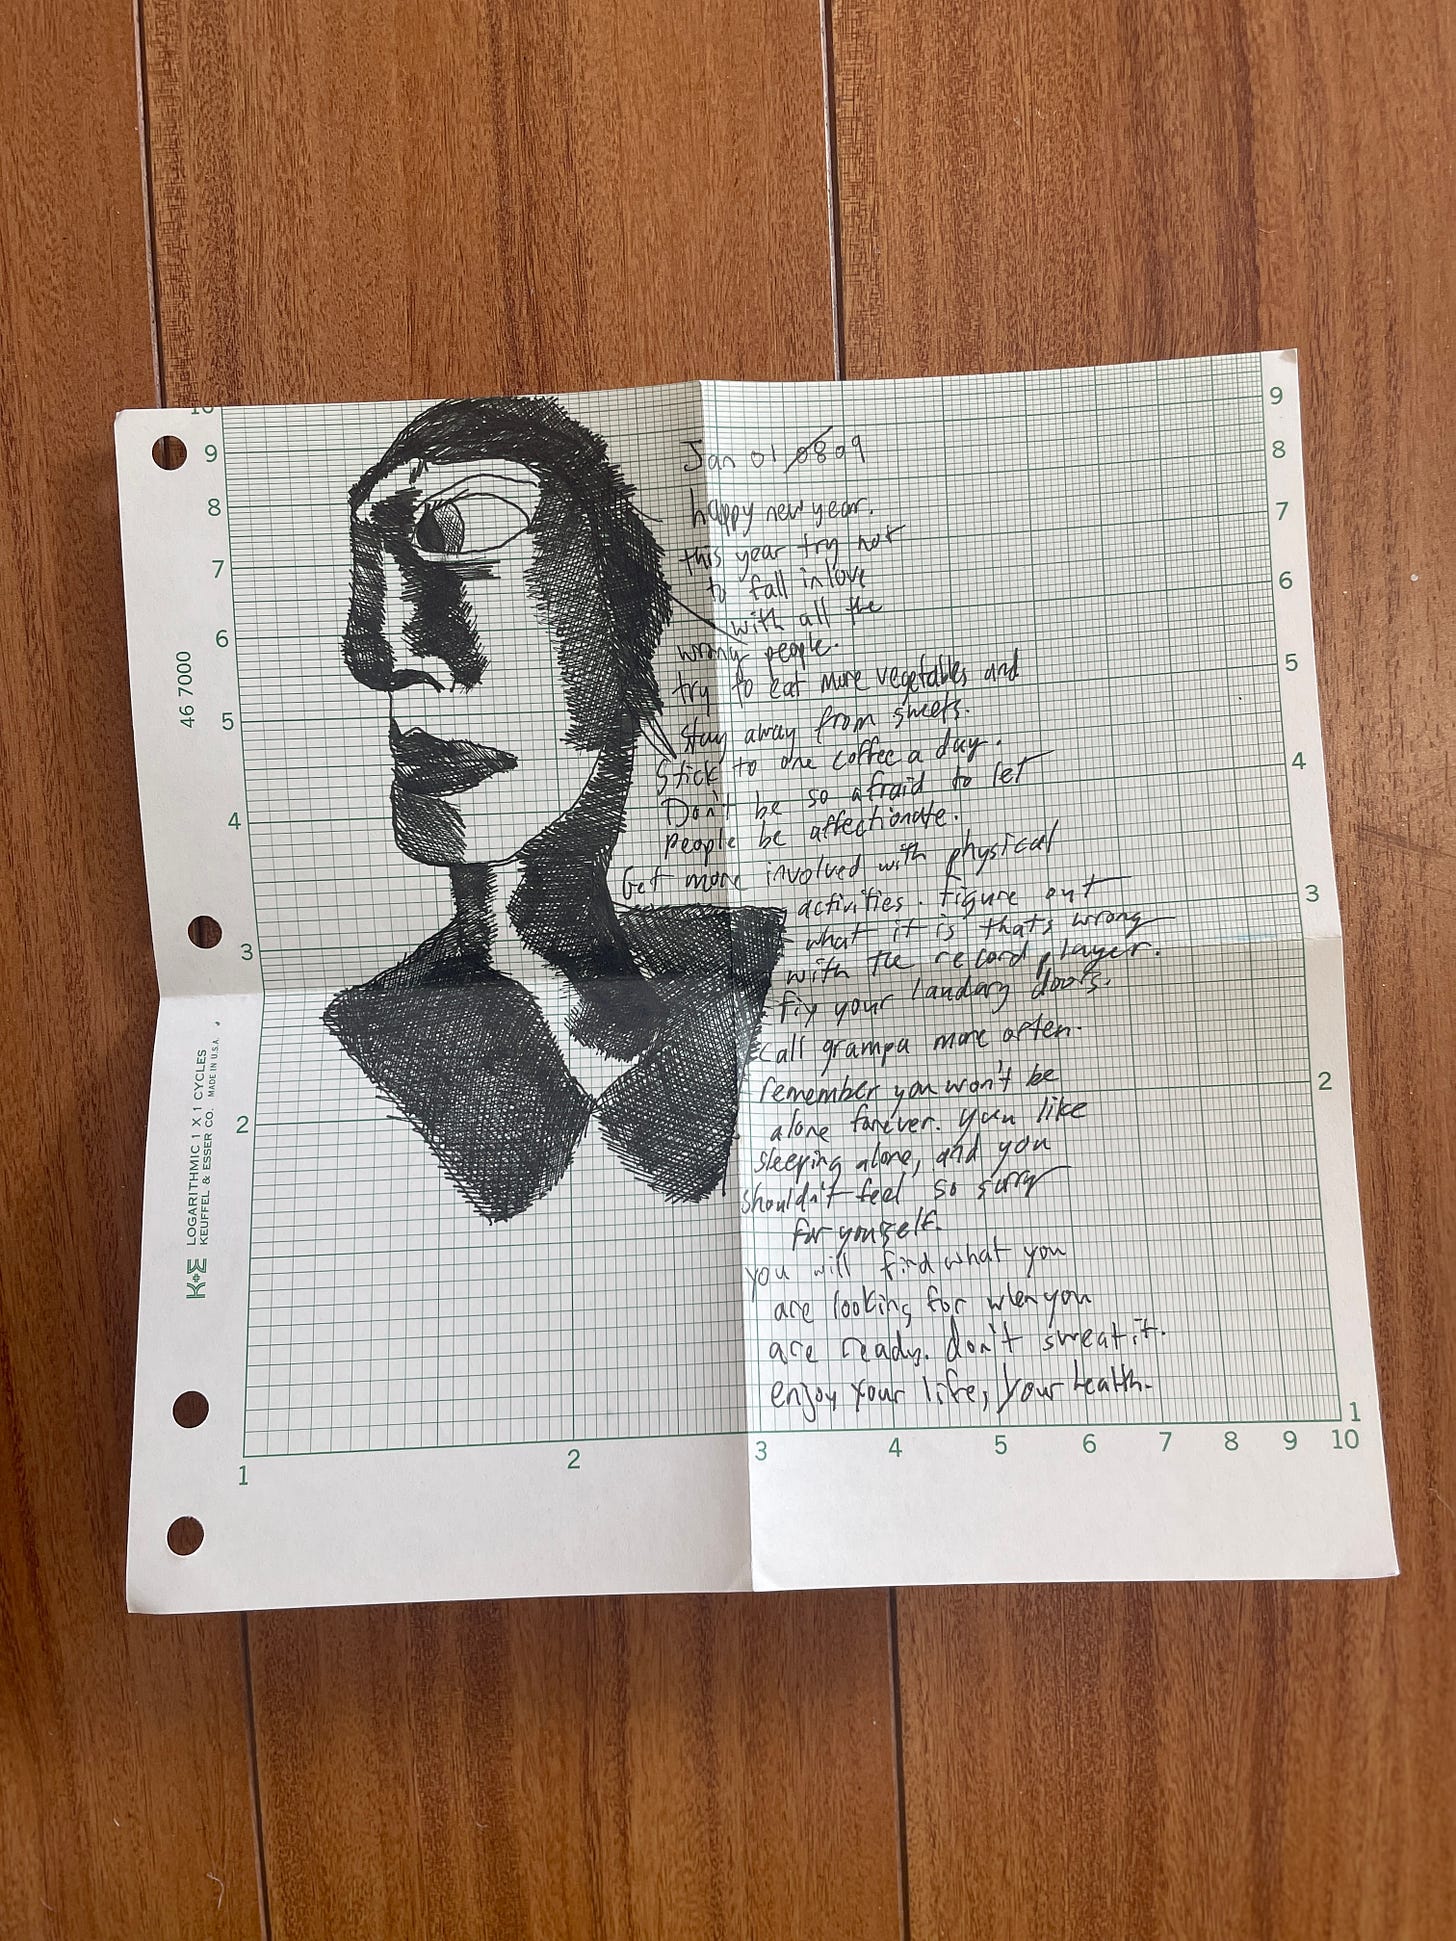 Jan 01 08 09
happy new year.
this year try not
to fall in love
with all the
wrong people.
try to eat more vegetables and
stay away from sweets.
Stick to one coffee a day.
Don't be so afraid to let
people be affectionate.
Get more involved with physical
activities. figure out
what it is thats wrong
with the record player.
fix your laundry doors.
call grampa more often.
remember you won't be
alone forever. you like
sleeping alone, and you
shouldn't feel so sorry
for yourself.
you will find what you
are looking for when you
are ready. don't sweat it.
enjoy your life, your health.
10
9
8
7
6
5
4
3
2
1
9
8
7
6
5
4
3
2
1
1 2 3 4 5 6 7 8 9 10
46 7000
K+E LOGARITHMIC 1 X 1 CYCLES
KEUFFEL & ESSER CO. MADE IN U.S.A.